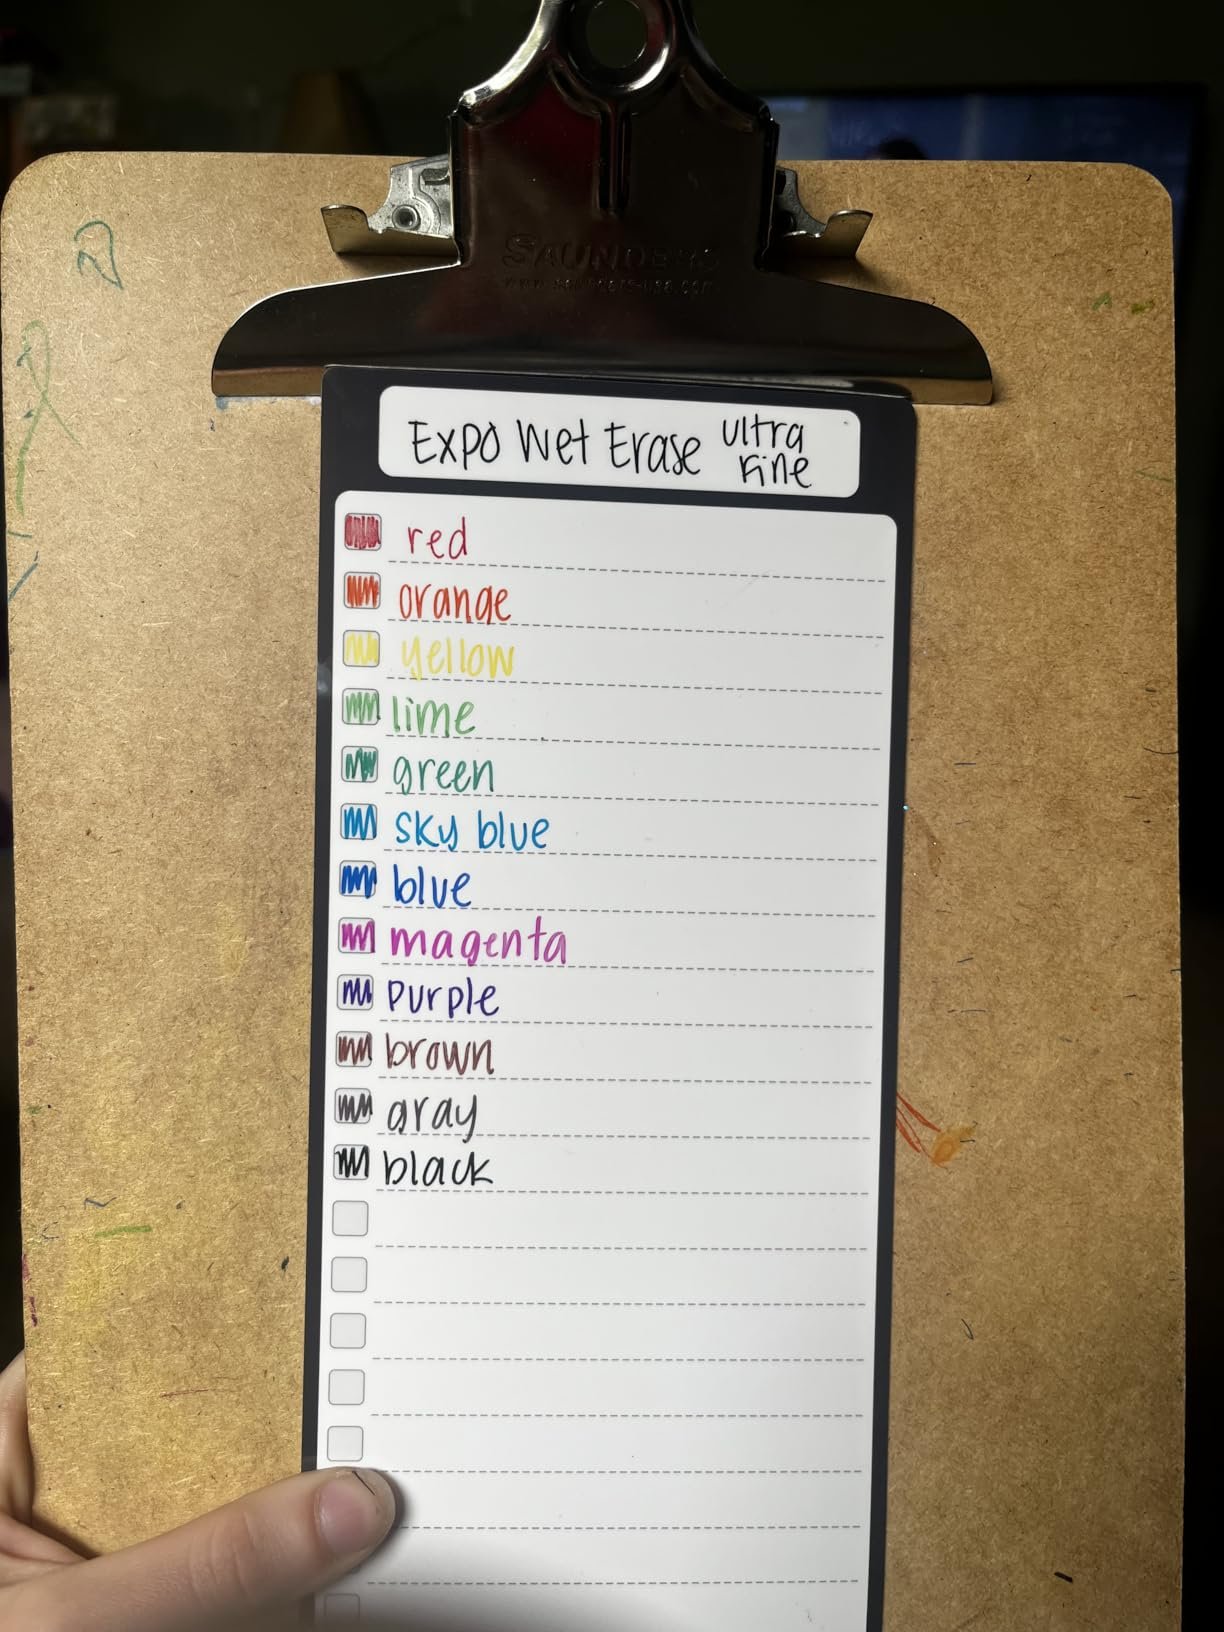 SAUNDERS
www.saunders-usa.com
Expo Wet Erase ultra
Fine
red
orange
yellow
lime
green
sky blue
blue
magenta
purple
brown
gray
black